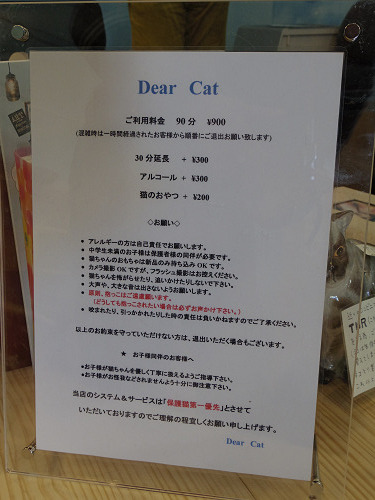 Dear Cat
ご利用料金 90分 ¥900
(混雑時は一時間経過されたお客様から順番にご退出お願い致します)
30分延長 + ¥300
アルコール + ¥300
猫のおやつ + ¥200
◇お願い◇
● アレルギーの方は自己責任でお願いします。
● 中学生未満のお子様は保護者様の同伴が必要です。
● 猫ちゃんのおもちゃは新品のみ持ち込みOKです。
● カメラ撮影OKですが、フラッシュ撮影はお控えください。
● 猫ちゃんを怖がらせたり、追いかけたりしないで下さい。
● 大声や、大きな音は出さないようお願いします。
● 原則、抱っこはご遠慮願います。
(どうしても抱っこされたい場合は必ずお声かけ下さい。)
● 咬まれたり、引っかかれたりした時の責任は負いかねますのでご了承ください。
以上のお約束を守っていただけない方は、退出いただく場合もございます。
★ お子様同伴のお客様へ
●お子様が猫ちゃんを優しく丁寧に扱えるようご指導下さい。
●お子様がお怪我などされませんよう十分に御注意下さい。
当店のシステム＆サービスは「保護猫第一優先」とさせて
いただいておりますのでご理解の程宜しくお願い申し上げます。
Dear Cat